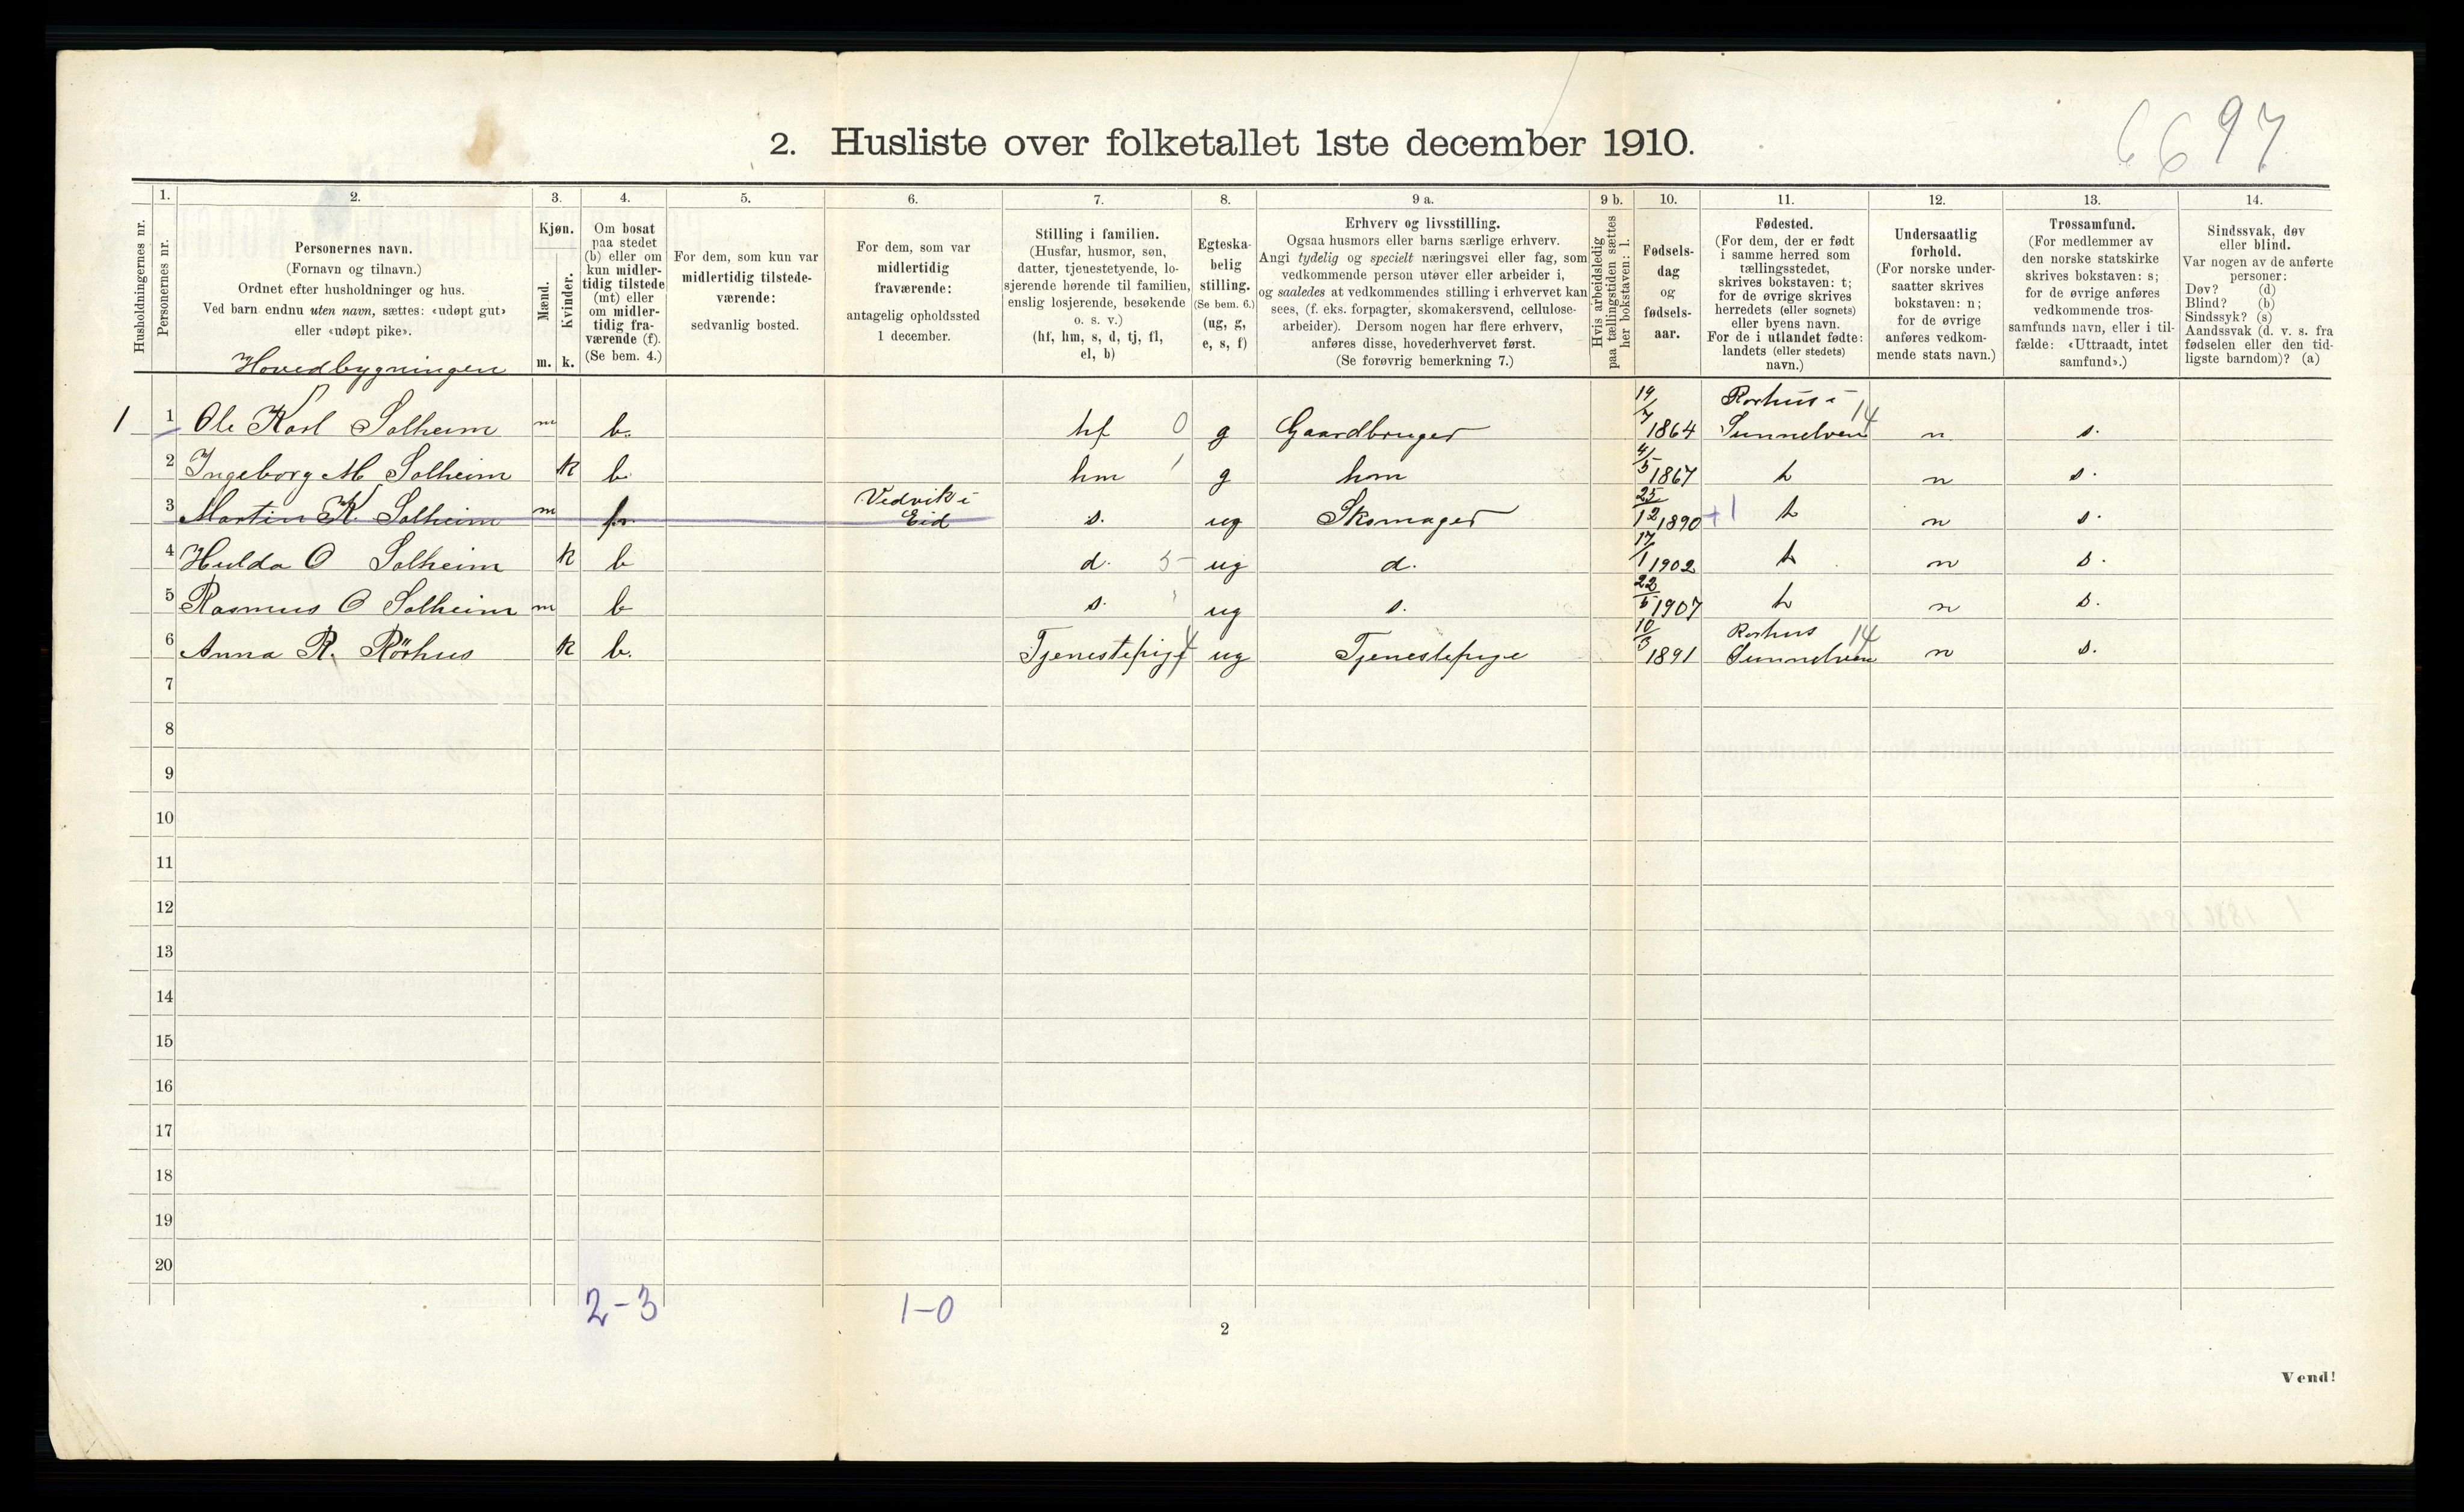 6697
2. Husliste over folketallet 1ste december 1910.
1. 2. 3. 4. 5. 6. 7. 8. 9 a. 9 b. 10. 11. 12. 13. 14.
Husholdningernes nr.
Personernes nr.
Personernes navn.
(Fornavn og tilnavn.)
Ordnet efter husholdninger og hus.
Ved barn endnu uten navn, sættes: «udøpt gut»
eller «udøpt pike».
Hovedbygningen
Kjøn.
Mænd.
Kvinder.
m. k.
Om bosat
paa stedet
(b) eller om
kun midler-
tidig tilstede
(mt) eller
om midler-
tidig fra-
værende (f).
(Se bem. 4.)
For dem, som kun var
midlertidig tilstede-
værende:
sedvanlig bosted.
For dem, som var
midlertidig
fraværende:
antagelig opholdssted
1 december.
Stilling i familien.
(Husfar, husmor, søn,
datter, tjenestetyende, lo-
sjerende hørende til familien,
enslig losjerende, besøkende
o. s. v.)
(hf, hm, s, d, tj, fl,
el, b)
Egteska-
belig
stilling.
(Se bem. 6.)
(ug, g,
e, s, f)
Erhverv og livsstilling.
Ogsaa husmors eller barns særlige erhverv.
Angi tydelig og specielt næringsvei eller fag, som
vedkommende person utøver eller arbeider i,
og saaledes at vedkommendes stilling i erhvervet kan
sees, (f. eks. forpagter, skomakersvend, cellulose-
arbeider). Dersom nogen har flere erhverv,
anføres disse, hovederhvervet først.
(Se forøvrig bemerkning 7.)
Hvis arbeidsledig
paa tællingstiden sættes
her bokstaven: l.
Fødsels-
dag
og
fødsels-
aar.
Fødested.
(For dem, der er født
i samme herred som
tællingsstedet,
skrives bokstaven: t;
for de øvrige skrives
herredets (eller sognets)
eller byens navn.
For de i utlandet fødte:
landets (eller stedets)
navn.)
Undersaatlig
forhold.
(For norske under-
saatter skrives
bokstaven: n;
for de øvrige
anføres vedkom-
mende stats navn.)
Trossamfund.
(For medlemmer av
den norske statskirke
skrives bokstaven: s;
for de øvrige anføres
vedkommende tros-
samfunds navn, eller i til-
fælde: «Uttraadt, intet
samfund».)
Sindssvak, døv
eller blind.
Var nogen av de anførte
personer:
Døv? (d)
Blind? (b)
Sindssyk? (s)
Aandssvak (d. v. s. fra
fødselen eller den tid-
ligste barndom)? (a)
1 1 Ole Karl Solheim m b. hf 0 g Gaardbruger 19/7 1864 Rorhus i Sunnelven 14 n s.
2 Ingeborg M Solheim k b. hm 1 g hom 4/5 1867 t n s.
3 Martin K. Solheim m Vedvik i Eid s. ug Skomager 25/12 1890 +1 t n s.
4 Hulda O Solheim k b d. 5 ug d. 17/1 1902 t n s.
5 Rasmus O Solheim m b s. ug s. 22/5 1907 t n s.
6 Anna R. Rörhus k b. Tjenestepige 4 ug Tjenestepige 10/3 1891 Rorhus Sunnelven 14 n s.
7
8
9
10
11
12
13
14
15
16
17
18
19
20
2-3 1-0
2
Vend!